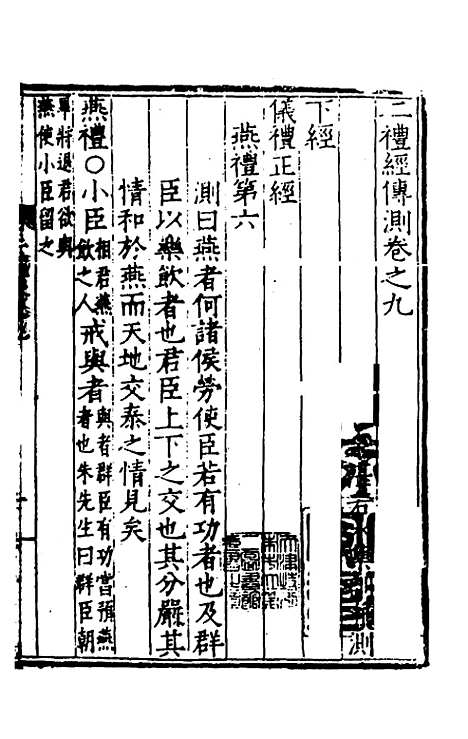 二禮經傳測卷之九
測
下經
儀禮正經
燕禮第六
測曰燕者何諸侯勞使臣若有功者也及群
臣以樂飲者也君臣上下之交也其分嚴其
情和於燕而天地交泰之情見矣
燕禮○小臣相君燕飲之人戒與者與者群臣有功當預燕者也朱先生曰群臣朝
畢將退君欲與燕使小臣留之